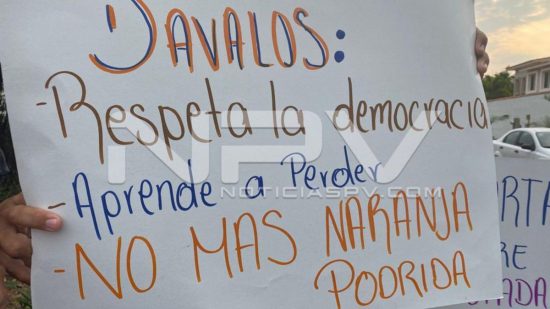 DAVALOS:
- Respeta la democracia
- Aprende a Perder
- NO MAS NARANJA
PODRIDA
NPV
NOTICIASPV.COM